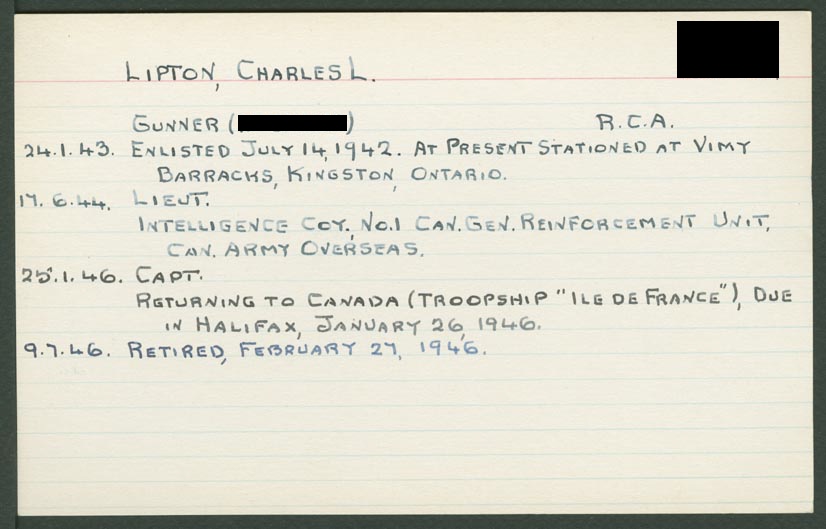 LIPTON, CHARLES L.
GUNNER ( ) R.C.A.
24.1.43. ENLISTED JULY 14, 1942. AT PRESENT STATIONED AT VIMY
BARRACKS, KINGSTON, ONTARIO.
17.6.44. LIEUT.
INTELLIGENCE COY, NO.1 CAN. GEN. REINFORCEMENT UNIT,
CAN. ARMY OVERSEAS.
25.1.46. CAPT.
RETURNING TO CANADA (TROOPSHIP "ILE DE FRANCE"), DUE
IN HALIFAX, JANUARY 26, 1946.
9.7.46. RETIRED, FEBRUARY 27, 1946.